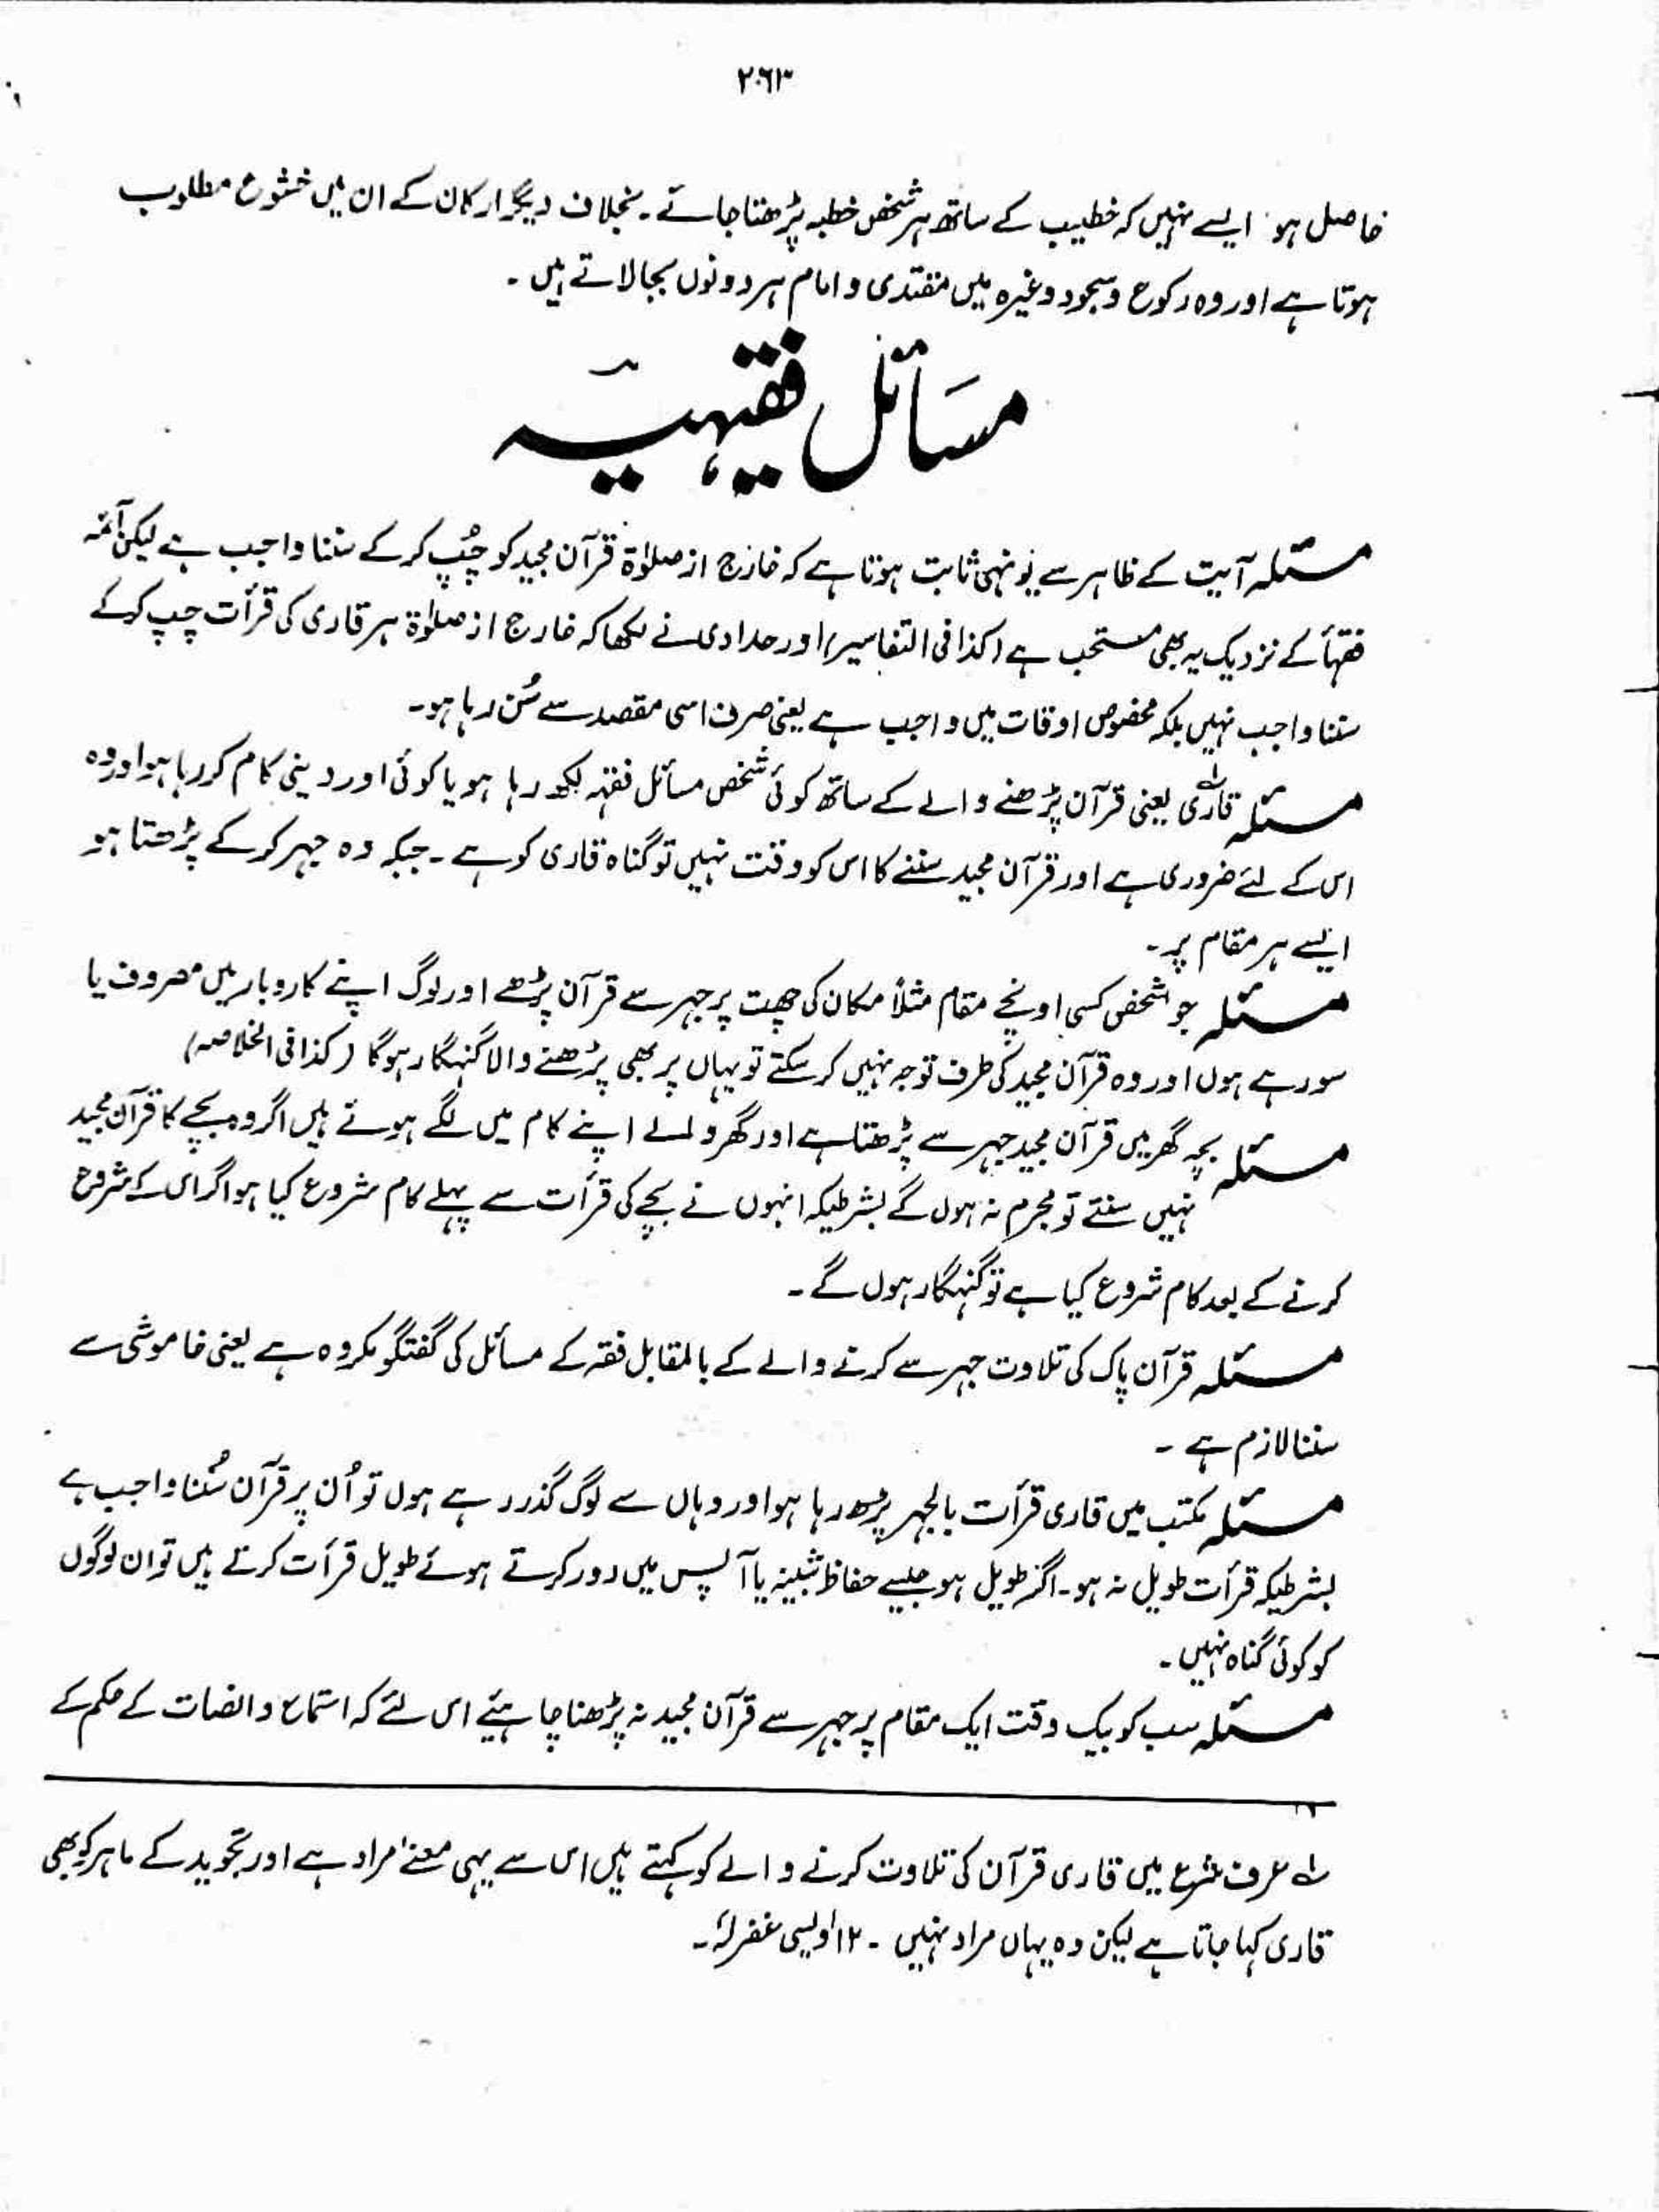 ۲۰۶۳
حاصل ہو ایسے نہیں کہ خطیب کے ساتھ ہر شخص خطبہ پڑھتا جائے۔ بخلاف دیگر ارکان کے ان میں خشوع مطلوب
ہوتا ہے اور وہ رکوع و سجود وغیرہ میں مقتدی و امام ہر دونوں بجا لاتے ہیں۔
مسَائل فقیہیہ
مسئلہ آیت کے ظاہر سے یونہی ثابت ہوتا ہے کہ خارج از صلوٰۃ قرآن مجید کو چُپ کر کے سننا واجب ہے لیکن آئمہ
فقہأ کے نزدیک یہ بھی مستحب ہے (کذا فی التفاسیر) اور حدادی نے لکھا کہ خارج از صلوٰۃ ہر قاری کی قرأت چپ کر کے
سننا واجب نہیں بلکہ مخصوص اوقات میں واجب ہے یعنی صرف اسی مقصد سے سُن رہا ہو۔
مسئلہ قاری؂۱ یعنی قرآن پڑھنے والے کے ساتھ کوئی شخص مسائل فقہہ لکھ رہا ہو یا کوئی اور دینی کام کر رہا ہو اور وہ
اس کے لئے ضروری ہے اور قرآن مجید سننے کا اس کو وقت نہیں تو گناہ قاری کو ہے۔ جبکہ وہ جہر کر کے پڑھتا ہو
ایسے ہر مقام پر۔
مسئلہ جو شخص کسی اونچے مقام مثلاً مکان کی چھت پر جہر سے قرآن پڑھے اور لوگ اپنے کاروبار میں مصروف یا
سو رہے ہوں اور وہ قرآن مجید کی طرف توجہ نہیں کر سکتے تو یہاں پر بھی پڑھنے والا گنہگار ہوگا (کذا فی الخلاصہ)
مسئلہ بچہ گھر میں قرآن مجید جہر سے پڑھتا ہے اور گھر والے اپنے کام میں لگے ہوتے ہیں اگر وہ بچے کا قرآن مجید
نہیں سنتے تو مجرم نہ ہوں گے بشرطیکہ انہوں نے بچے کی قرأت سے پہلے کام شروع کیا ہو اگر اس کے شروع
کرنے کے بعد کام شروع کیا ہے تو گنہگار ہوں گے۔
مسئلہ قرآن پاک کی تلاوت جہر سے کرنے والے کے بالمقابل فقہ کے مسائل کی گفتگو مکروہ ہے یعنی خاموشی سے
سننا لازم ہے۔
مسئلہ مکتب میں قاری قرأت بالجہر پڑھ رہا ہو اور وہاں سے لوگ گذر رہے ہوں تو اُن پر قرآن سُننا واجب ہے
بشرطیکہ قرأت طویل نہ ہو۔ اگر طویل ہو جیسے حفاظ شبینہ یا آپس میں دور کرتے ہوئے طویل قرأت کرتے ہیں تو ان لوگوں
کو کوئی گناہ نہیں۔
مسئلہ سب کو بیک وقت ایک مقام پر جہر سے قرآن مجید نہ پڑھنا چاہیئے اس لئے کہ استماع و انصات کے حکم کے
؂۱ عرف شرع میں قاری قرآن کی تلاوت کرنے والے کو کہتے ہیں اس سے یہی معنےٰ مراد ہے اور تجوید کے ماہر کو بھی
قاری کہا جاتا ہے لیکن وہ یہاں مراد نہیں۔ ۱۲ اُویسی غفرلہٗ۔